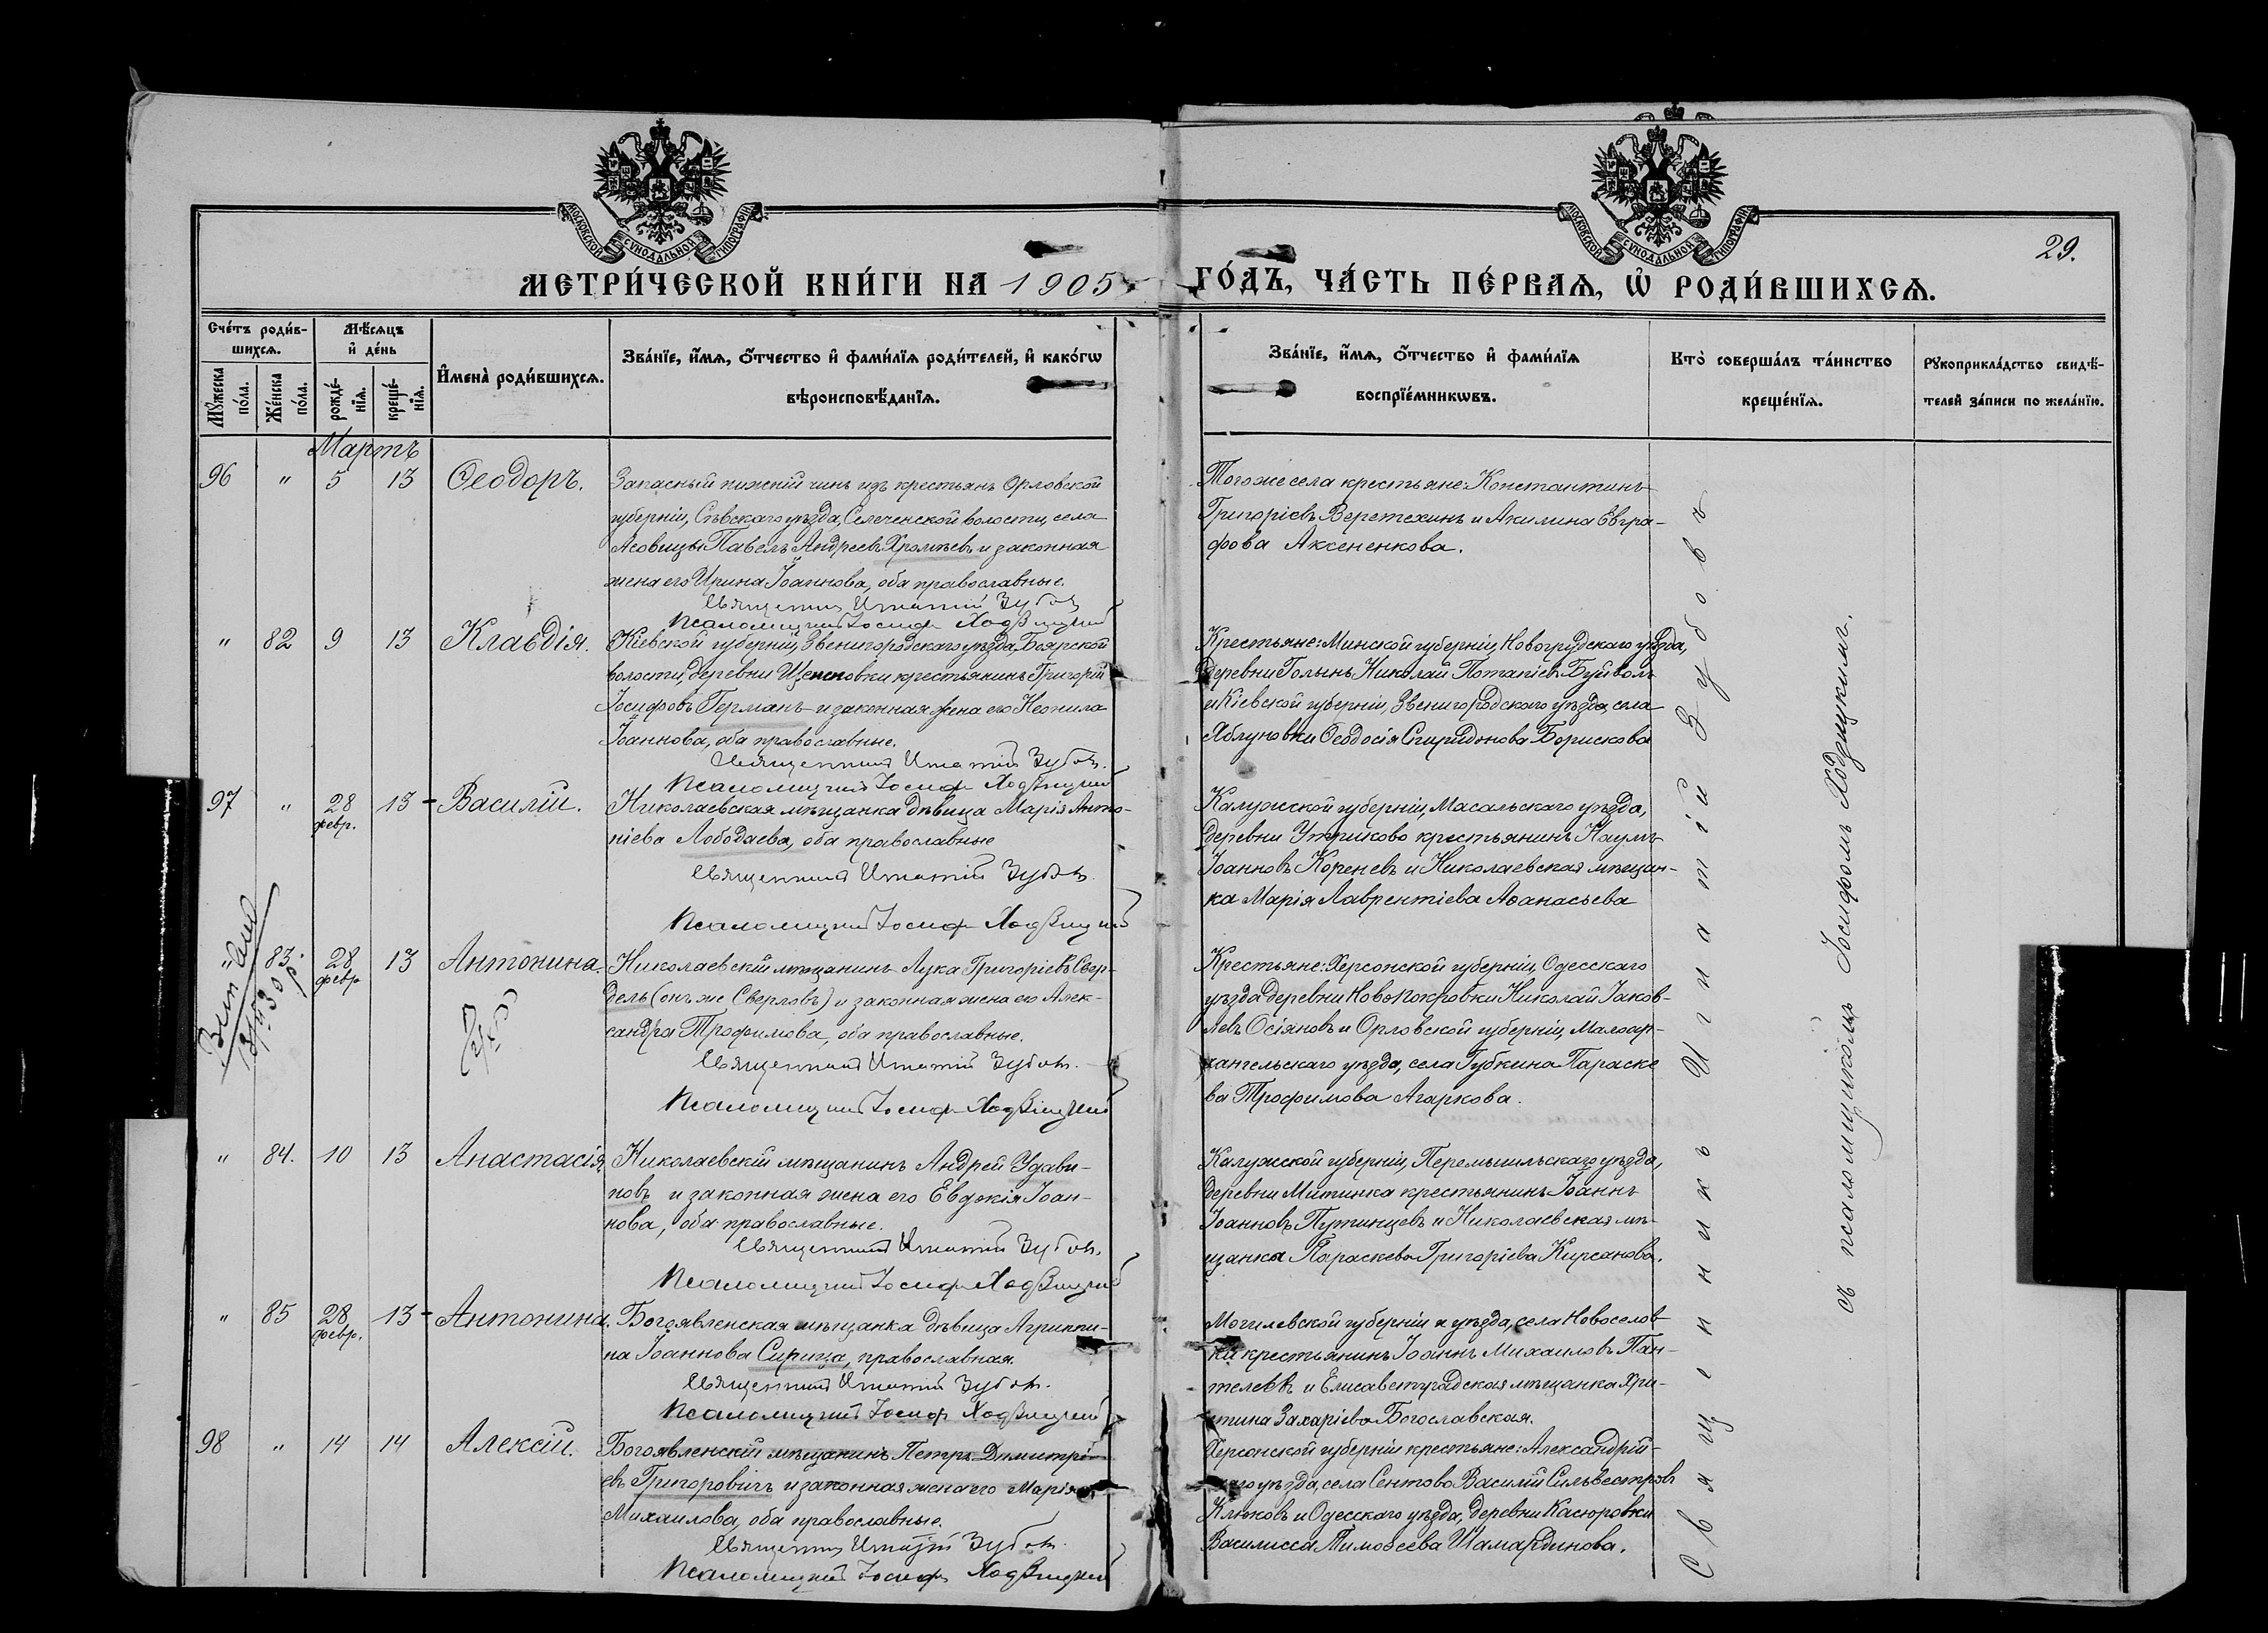 МОСКОВСКОЙ СѴНОДАЛЬНОЙ ТИПОГРАФІИ
МОСКОВСКОЙ СѴНОДАЛЬНОЙ ТИПОГРАФІИ
29.
МЕТРИ́ЧЕСКОЙ КНИ́ГИ НА 1905 ГО́ДЪ, ЧА́СТЬ ПЕ́РВАѦ, Ѡ҆ РОДИ́ВШИХСѦ.
Сче́тъ роди́в-
шихсѧ.
Мꙋ́жеска по́ла.
Же́нска по́ла.
Мѣ́сѧцъ
и҆ де́нь
рожде́-
нїѧ.
креще́-
нїѧ.
И҆мена̀ роди́вшихсѧ.
Зва́нїе, и҆́мѧ, ѻ҆́тчество и҆ фами́лїѧ роди́телей, и҆ како́гѡ
вѣроисповѣ́данїѧ.
Зва́нїе, и҆́мѧ, ѻ҆́тчество и҆ фами́лїѧ
воспрїе́мникѡвъ.
Кто̀ соверша́лъ та́инство
креще́нїѧ.
Рꙋкоприкла́дство свидѣ́-
телей за́писи по жела́нїю.
Мартъ
96 " 5 13 Ѳеодоръ.
Запасный нижній чинъ изъ крестьянъ Орловской
губерніи, Сѣвскаго уѣзда, Селеченской волости, села
Павелъ Андреевъ и законная
жена его Ирина Іоаннова, оба православные.
Священникъ Игнатій Зубовъ
Псаломщикъ Іосифъ Ходзицкій
Тогоже села крестьяне: Константинъ
Григоріевъ Веретехинъ и Акилина Евгра-
фова Аксененкова.
" 82 9 13 Клавдія.
Кіевской губерніи, Звенигородскаго уѣзда, Боярской
волости, деревни крестьянинъ Григорій
Іосифовъ Германъ и законная жена его Неонила
Іоаннова, оба православные.
Священникъ Игнатій Зубовъ.
Псаломщикъ Іосифъ Ходзицкій
Крестьяне: Минской губерніи, Новогрудскаго уѣзда,
деревни Голынь Николай Потапіевъ Буйволъ
и Кіевской губерніи, Звенигородскаго уѣзда, села
Яблуновки Ѳеодосія Спиридонова Борискова
97 " 28 февр. 13 Василій.
Николаевская мѣщанка дѣвица Марія Анто-
ніева Лободаева, оба православные
Священникъ Игнатій Зубовъ.
Псаломщикъ Іосифъ Ходзицкій
Калужской губерніи, Масальскаго уѣзда,
деревни Утриково крестьянинъ Наумъ
Іоанновъ Кореневъ и Николаевская мѣщан-
ка Марія Лаврентіева Аѳанасьева
83. 28 февр 13 Антонина.
Николаевскій мѣщанинъ Лука Григоріевъ Свер-
дель (онъ же Сверловъ) и законная жена его Алек-
сандра Трофимова, оба православные.
Священникъ Игнатій Зубовъ.
Псаломщикъ Іосифъ Ходзицкій
Крестьяне: Херсонской губерніи, Одесскаго
уѣзда деревни Новопокровки Николай Іаков-
левъ Осіяновъ и Орловской губерніи, Малоар-
хангельскаго уѣзда, села Губкина Параске
ва Трофимова Агаркова.
" 84. 10 13 Анастасія.
Николаевскій мѣщанинъ Андрей Удави-
новъ и законная жена его Евдокія Іоан-
нова, оба православные.
Священникъ Игнатій Зубовъ.
Псаломщикъ Іосифъ Ходзицкій
Калужской губерніи, Перемышльскаго уѣзда,
деревни Митинка крестьянинъ Іоаннъ
Іоанновъ Путинцевъ и Николаевская мѣ-
щанка Параскева Григоріева Кирсанова.
" 85 28 февр. 13 Антонина.
Богоявленская мѣщанка дѣвица Агриппи-
на Іоаннова Сирица, православная.
Священникъ Игнатій Зубовъ.
Псаломщикъ Іосифъ Ходзицкій
Могилевской губерніи и уѣзда, села Новоселов
ки крестьянинъ Іоаннъ Михаиловъ Пан-
телѣевъ и Елисаветградская мѣщанка Хри-
стина Захаріева Богославская.
98 " 14 14 Алексій.
Богоявленскій мѣщанинъ Петръ Димитрі-
евъ Григоровичъ и законная жена его Марія
Михаилова, оба православные.
Священникъ Игнатій Зубовъ.
Псаломщикъ Іосифъ Ходзицкій
Херсонской губерніи крестьяне: Александрій-
скаго уѣзда, села Сентово Василій Сильвестровъ
Клюковъ и Одесскаго уѣзда, деревни Касюровки
Василисса Тимоѳеева Шамардинова.
Священникъ Игнатій Зубовъ
съ псаломщикомъ Іосифомъ Ходзицкимъ.